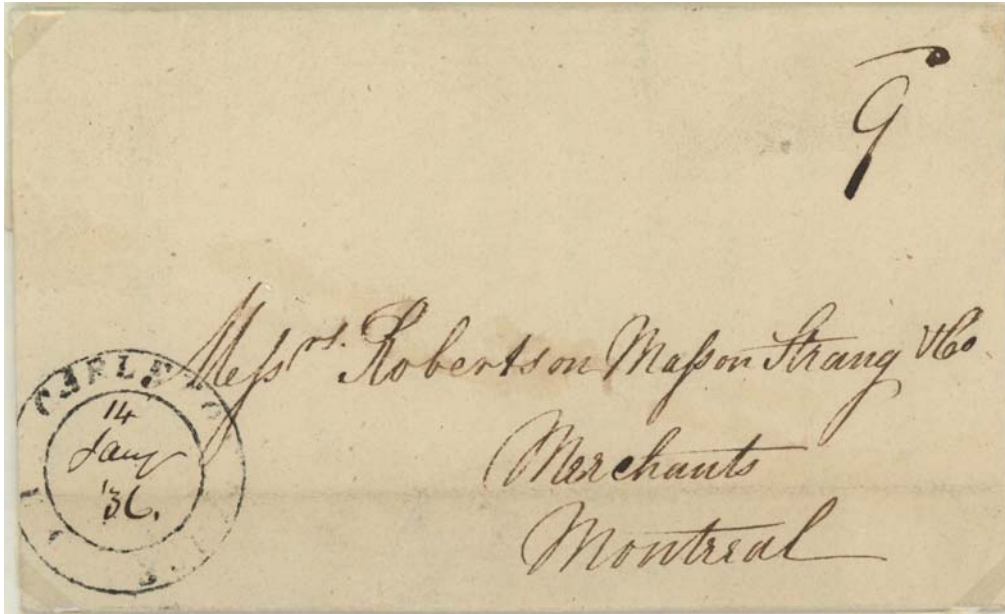 9
Meſsrs. Robertson Maſson Strang &Co
Merchants
Montreal
14
Jany
'36.